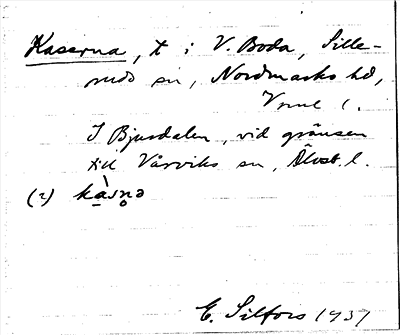 Kaserna, t i V. Boda, Sille-
ruds sn, Nordmarks hd,
Vrml l.
I Bjusdalen, vid gränsen
till Vårviks sn, Älvsb. l.
(2) kàsṇə
E. Silfors 1937